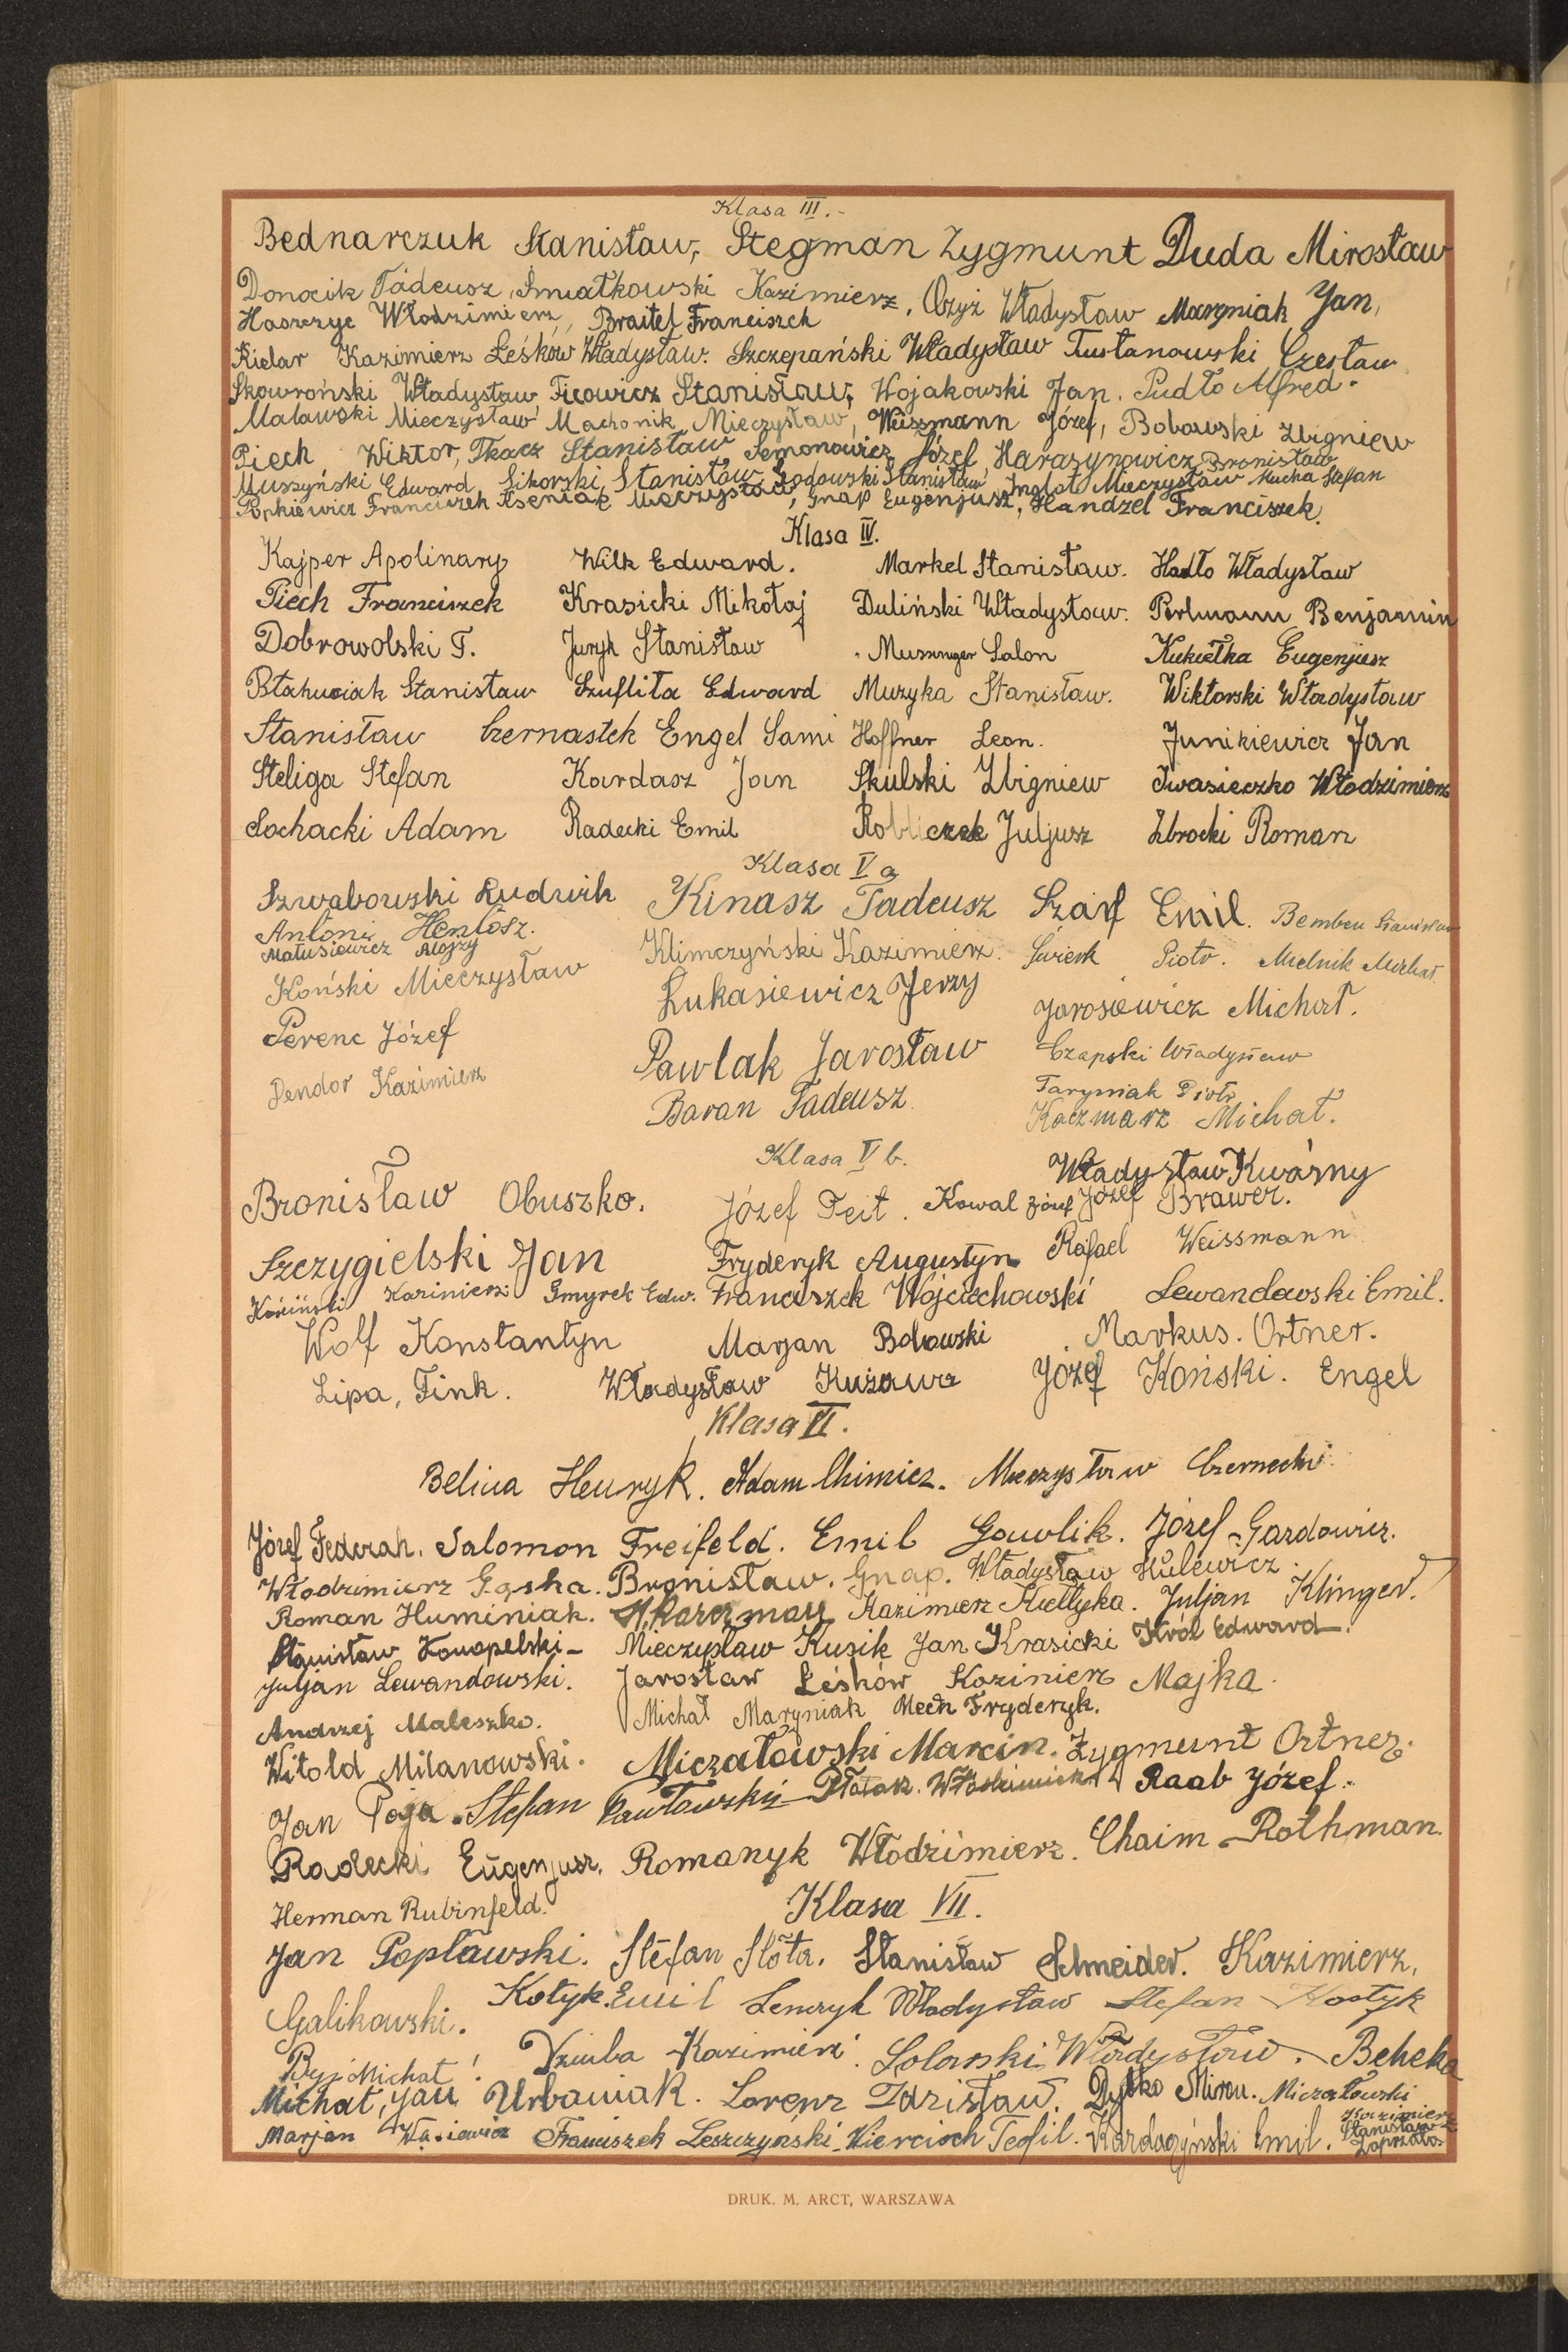 Klasa III.-
Bednarczuk Stanisław, Stegman Zygmunt Duda Mirosław
Donocik Tadeusz, Śmiatkowski Kazimierz, Ożyż Władysław Maryniak Jan,
Haszczyc Włodzimierz, Braitel Franciszek
Kielar Kazimierz Leśków Władysław. Szczepański Władysław Tustanowski Czesław
Skowroński Władysław Ficowicz Stanisław, Wojakowski Jan. Pudło Alfred.
Malawski Mieczysław Machonik Mieczysław, Weissmann Józef, Bobowski Zbigniew
Piech Wiktor, Tkacz Stanisław Semonowicz Józef, Harasynowicz Bronisław
Muszyński Edward, Sikorski Stanisław Sodowski Stanisław Inglot Mieczysław Mucha Stefan
Popkiewicz Franciszek Aseniak Mieczysław, Gnap Eugenjusz, Handzel Franciszek.
Klasa IV.
Kajper Apolinary Wilk Edward. Markel Stanisław. Hadło Władysław
Piech Franciszek Krasicki Mikołaj Duliński Władysław. Perlmann Benjamin
Dobrowolski T. Juryk Stanisław Mussinger Salon Kukiełka Eugenjusz
Błahuciak Stanisław Szuflita Edward Muzyka Stanisław. Wiktorski Władysław
Stanisław Czernastek Engel Sami Hoffner Leon. Junikiewicz Jan
Steliga Stefan Kardasz Jan Skulski Zbigniew Iwasieczko Włodzimierz
Sochacki Adam Radecki Emil Robliczek Juljusz Zbrocki Roman
Klasa V a
Szwabowski Ludwik Kinasz Tadeusz Szarf Emil. Bemben Stanisław
Antoni Henlosz.
Matusiewicz Alojzy Klimczyński Kazimierz. Świerk Piotr. Mielnik Michał
Koński Mieczysław Łukasiewicz Jerzy Jarosiewicz Michał.
Perenc Józef Pawlak Jarosław Czapski Władysław
Dendor Kazimierz Baran Tadeusz Taryniak Piotr
Kaczmarz Michał.
Klasa V b. Władysław Kwaśny
Bronisław Obuszko. Józef Feit. Kowal Józef Józef Brawer.
Szczygielski Jan Fryderyk Augustyn Rafael Weissmann
Kosiński Kazimierz Smyrek Edw. Franciszek Wojciechowski Lewandowski Emil.
Wolf Konstantyn Marjan Bolowski Markus. Ortner.
Lipa, Fink. Władysław Kużawa Józef Koński. Engel
Klasa VI.
Belina Henryk. Adam Chimicz. Mieczysław Czernecki.
Józef Federah. Salomon Freifeld. Emil Gawlik. Józef Gazdowicz.
Włodzimierz Gąska. Bronisław. Gnap. Władysław Hulewicz.
Roman Huminiak. Kazimierz Kiełtyka. Juljan Klinger.
Stanisław Konopelski - Mieczysław Kusik Jan Krasicki Król Edward.
Juljan Lewandowski. Jarosław Leśków Kazimierz Majka.
Andrzej Maleszko. Michał Maryniak Mech Fryderyk.
Witold Milanowski. Miczałowski Marcin. Zygmunt Ortner.
Jan Poja. Stefan Pawłowski - Płatak. Włodzimierz Raab Józef.
Radecki Eugenjusz. Romanyk Włodzimierz. Chaim Rothman.
Herman Rubinfeld.
Klasa VII.
Jan Popławski. Stefan Słota. Stanisław Schneider. Kazimierz,
Galikowski. Kotyk Emil Lenczyk Władysław Stefan Kostyk
Byj Michał! Dziuba Kazimierz. Solarski Władysław. Beheka
Michał, Jan Urbaniak. Lorenz Zdzisław. Dytko Miron. Miczałowski Kazimierz
Marjan Wąsiewicz Franciszek Leszczyński. Kiercioch Teofil. Kardaszyński Emil. Stanisław Zaprzała.
DRUK. M. ARCT, WARSZAWA